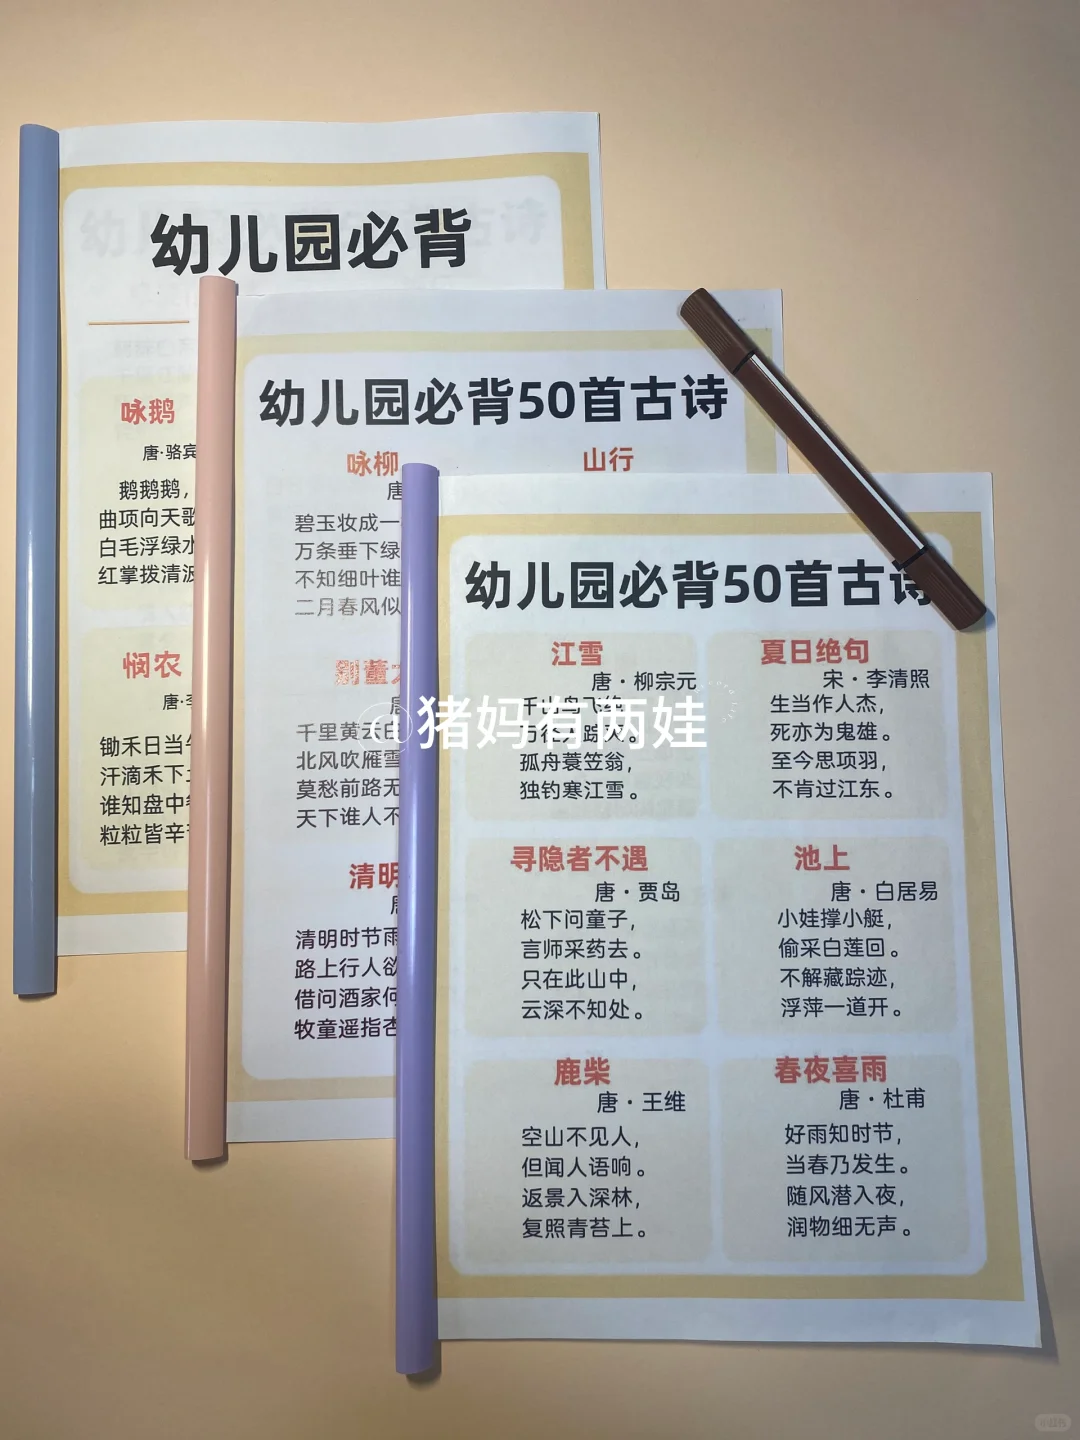 幼儿园必背
咏鹅
唐·骆宾
鹅鹅鹅，
曲项向天歌
白毛浮绿水
红掌拨清波
悯农
唐·李
锄禾日当午
汗滴禾下土
谁知盘中餐
粒粒皆辛苦
幼儿园必背50首古诗
咏柳
唐
碧玉妆成一
万条垂下绿
不知细叶谁
二月春风似
山行
别董大
唐
千里黄云白
北风吹雁雪
莫愁前路无
天下谁人不
清明
唐
清明时节雨
路上行人欲
借问酒家何
牧童遥指杏
幼儿园必背50首古诗
江雪
唐·柳宗元
千山鸟飞绝
万径人踪灭。
孤舟蓑笠翁，
独钓寒江雪。
夏日绝句
宋·李清照
生当作人杰，
死亦为鬼雄。
至今思项羽，
不肯过江东。
寻隐者不遇
唐·贾岛
松下问童子，
言师采药去。
只在此山中，
云深不知处。
池上
唐·白居易
小娃撑小艇，
偷采白莲回。
不解藏踪迹，
浮萍一道开。
鹿柴
唐·王维
空山不见人，
但闻人语响。
返景入深林，
复照青苔上。
春夜喜雨
唐·杜甫
好雨知时节，
当春乃发生。
随风潜入夜，
润物细无声。
@猪妈有两娃